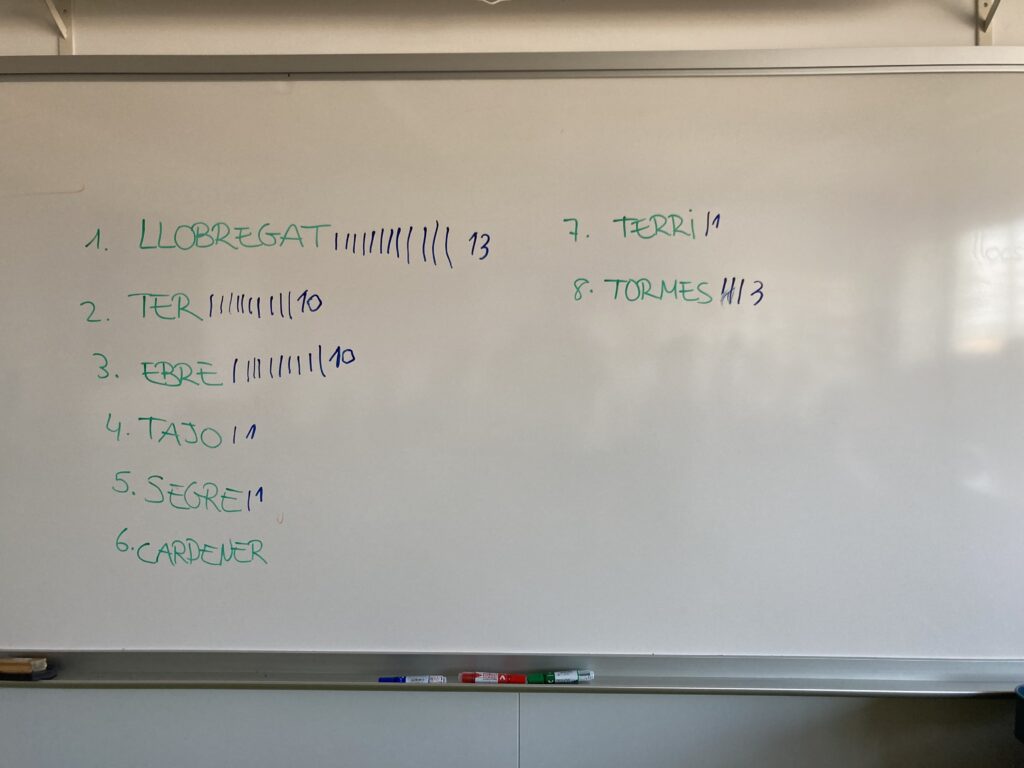 1. LLOBREGAT ||||||||||||| 13
2. TER |||||||||| 10
3. EBRE |||||||||| 10
4. TAJO | 1
5. SEGRE | 1
6. CARDENER
7. TERRI | 1
8. TORMES ||| 3
llocs